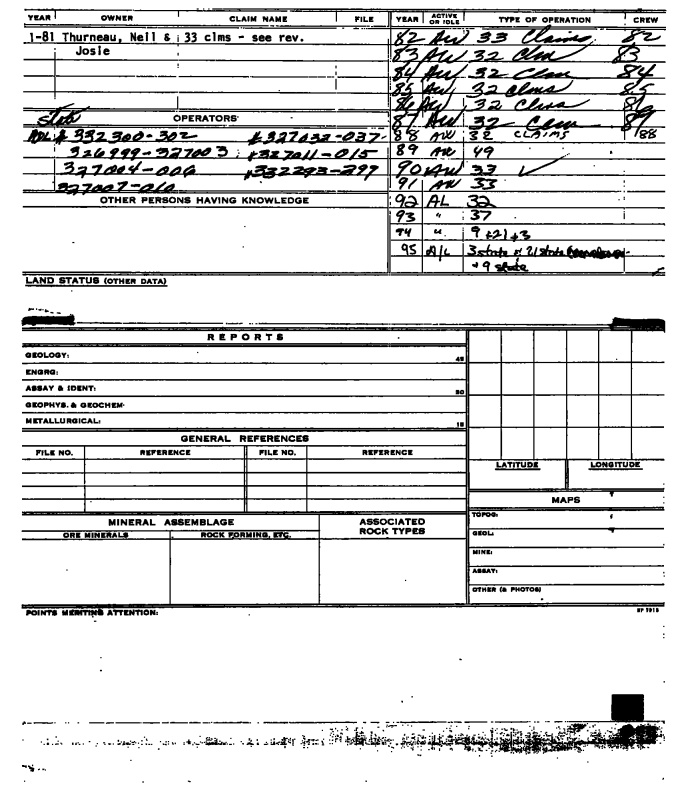 YEAR OWNER CLAIM NAME FILE YEAR ACTIVE OR IDLE TYPE OF OPERATION CREW
1-81 Thurneau, Neil & 33 clms - see rev. 82 AW 33 Claims 82
Josie 83 AW 32 Clm 83
84 AW 32 Clam 84
85 AW 32 clms 85
86 AW 32 Clms 86
OPERATORS 87 AW 32 Clm 87
ADL # 332300-302 #327032-037- 88 AW 32 CLAIMS 88
326999-327003 #327011-015 89 AW 49
327004-006 #332293-299 90 AW 33 ✓
327007-010 91 AW 33
OTHER PERSONS HAVING KNOWLEDGE 92 AL 32
93 " 37
94 " 9+21+3
95 A/L 3 state + 21 state
+ 9 state
LAND STATUS (OTHER DATA)
REPORTS
GEOLOGY: 45
ENGRG:
ASSAY & IDENT: 30
GEOPHYS. & GEOCHEM
METALLURGICAL: 15
GENERAL REFERENCES
FILE NO. REFERENCE FILE NO. REFERENCE
LATITUDE LONGITUDE
MAPS
MINERAL ASSEMBLAGE ASSOCIATED ROCK TYPES
ORE MINERALS ROCK FORMING, ETC.
TOPOG:
GEOL:
MINE:
ASSAY:
OTHER (& PHOTOS)
POINTS MERITING ATTENTION: